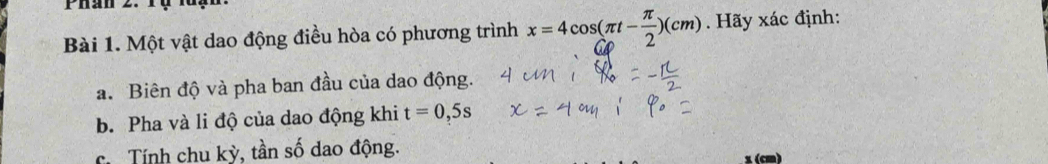 Phần 2. Tự luận.
Bài 1. Một vật dao động điều hòa có phương trình x = 4 cos(πt − π/2)(cm) . Hãy xác định:
a. Biên độ và pha ban đầu của dao động. 4 cm ; φ₀ = -π/2
b. Pha và li độ của dao động khi t = 0,5s x = 4 cm ; φ₀ =
c. Tính chu kỳ, tần số dao động.
x (cm)